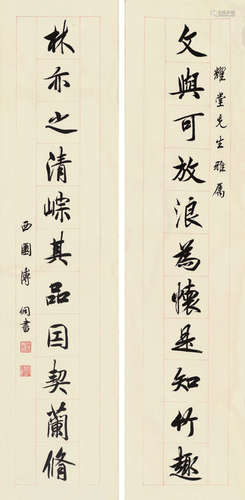 耀堂先生雅属
文与可放浪為懷是知竹趣
林亦之清崇其品因契蘭脩
西園溥侗書